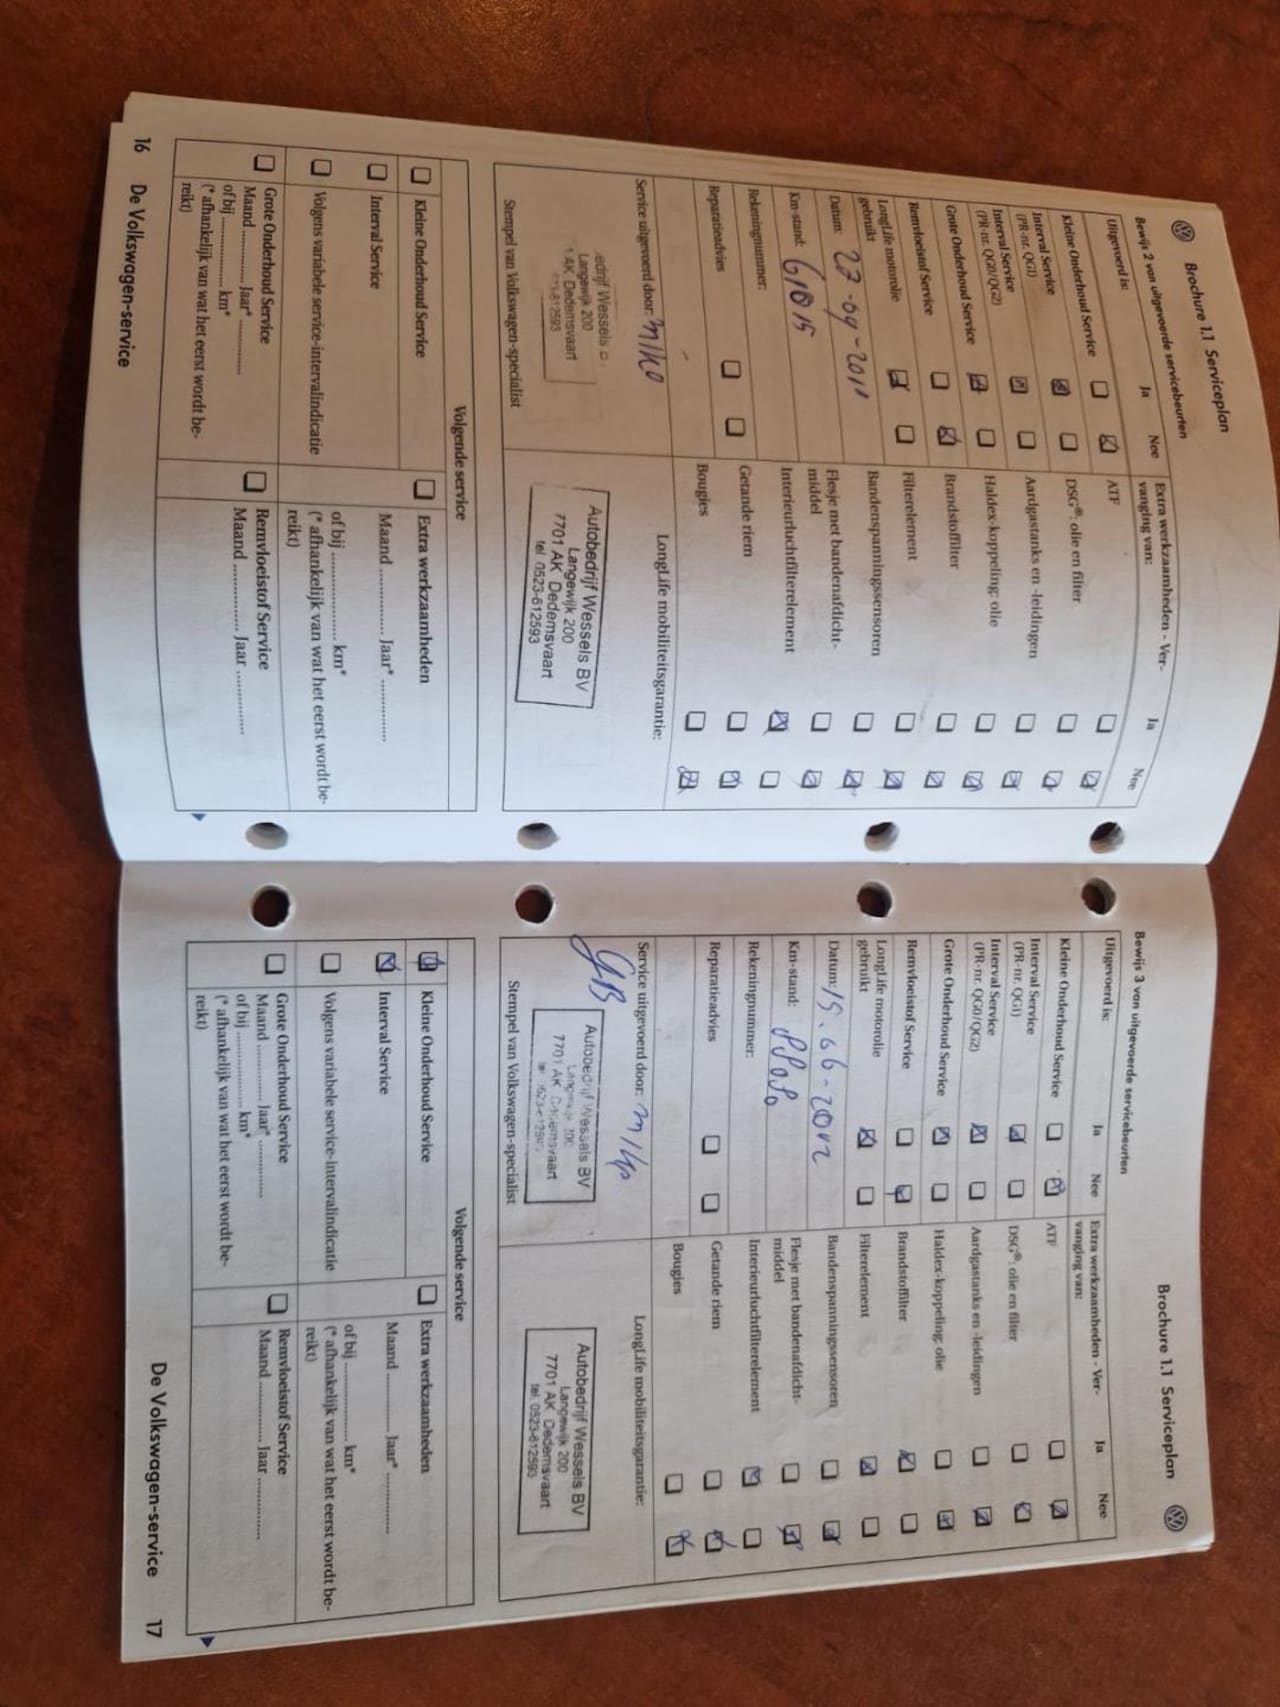 Brochure 1.1 Serviceplan
Bewijs 2 van uitgevoerde servicebeurten
Uitgevoerd is:
Ja
Nee
Kleine Onderhoud Service
Interval Service
(PR-nr. QG1)
Interval Service
(PR-nr. QG0/QG2)
Grote Onderhoud Service
Remvloeistof Service
LongLife motorolie
gebruikt
Datum: 27-09-2011
Km-stand:
Rekeningnummer:
Reparatieadvies
Extra werkzaamheden - Ver-
vanging van:
Ja
Nee
ATF
DSG®: olie en filter
Aardgastanks en -leidingen
Haldex-koppeling: olie
Brandstoffilter
Filterelement
Bandenspanningssensoren
Flesje met bandenafdicht-
middel
Interieurluchtfilterelement
Getande riem
Bougies
Service uitgevoerd door:
edrijf Wessels
Langewijk 200
AK Dedemsvaart
612593
Stempel van Volkswagen-specialist
LongLife mobiliteitsgarantie:
Autobedrijf Wessels BV
Langewijk 200
7701 AK Dedemsvaart
tel 0523-612593
Volgende service
Kleine Onderhoud Service
Interval Service
Volgens variabele service-intervalindicatie
Grote Onderhoud Service
Maand ............ Jaar* ............
of bij ............ km*
(* afhankelijk van wat het eerst wordt be-
reikt)
Extra werkzaamheden
Maand ............ Jaar* ............
of bij ............ km*
(* afhankelijk van wat het eerst wordt be-
reikt)
Remvloeistof Service
Maand ............ Jaar ............
16 De Volkswagen-service
Brochure 1.1 Serviceplan
Bewijs 3 van uitgevoerde servicebeurten
Uitgevoerd is:
Ja
Nee
Kleine Onderhoud Service
Interval Service
(PR-nr. QG1)
Interval Service
(PR-nr. QG0/QG2)
Grote Onderhoud Service
Remvloeistof Service
LongLife motorolie
gebruikt
Datum: 15-06-2012
Km-stand:
Rekeningnummer:
Reparatieadvies
Extra werkzaamheden - Ver-
vanging van:
Ja
Nee
ATF
DSG®: olie en filter
Aardgastanks en -leidingen
Haldex-koppeling: olie
Brandstoffilter
Filterelement
Bandenspanningssensoren
Flesje met bandenafdicht-
middel
Interieurluchtfilterelement
Getande riem
Bougies
Service uitgevoerd door:
Autobedrijf Wessels BV
Langewijk 200
7701 AK Dedemsvaart
Stempel van Volkswagen-specialist
LongLife mobiliteitsgarantie:
Autobedrijf Wessels BV
Langewijk 200
7701 AK Dedemsvaart
tel 0523-612593
Volgende service
Kleine Onderhoud Service
Interval Service
Volgens variabele service-intervalindicatie
Grote Onderhoud Service
Maand ............ Jaar* ............
of bij ............ km*
(* afhankelijk van wat het eerst wordt be-
reikt)
Extra werkzaamheden
Maand ............ Jaar* ............
of bij ............ km*
(* afhankelijk van wat het eerst wordt be-
reikt)
Remvloeistof Service
Maand ............ Jaar ............
De Volkswagen-service 17